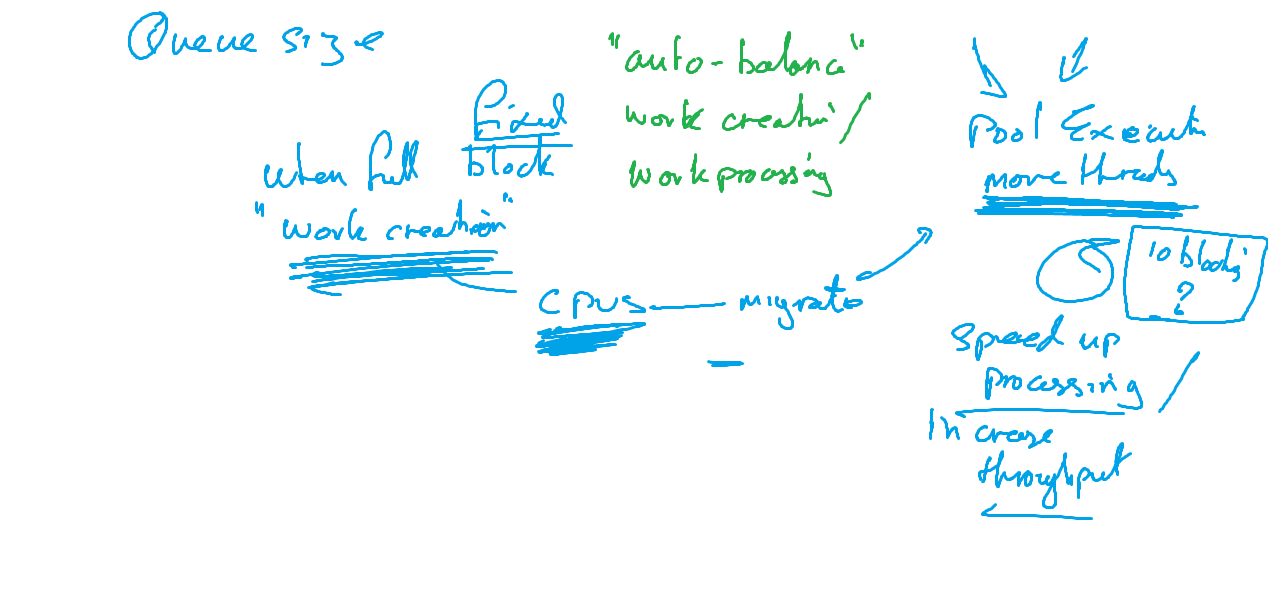 Queue size
Fixed
when full block
"work creation"
CPUs — migrate
"auto-balance"
work creation /
work processing
Pool Executor
more threads
IO blocking
?
speed up
processing /
Increase
throughput